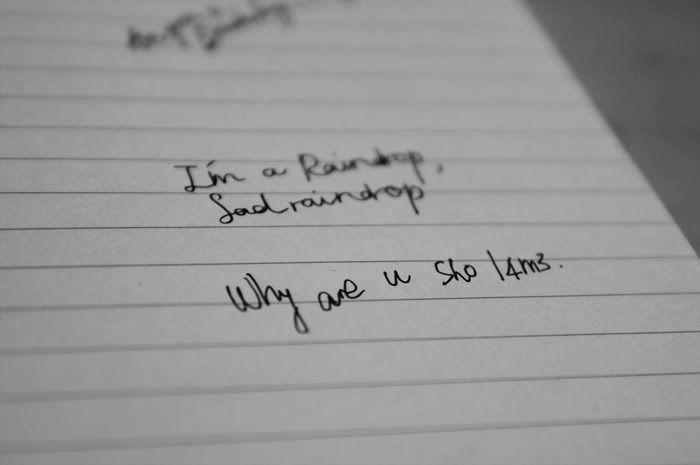 I'm a Raindrop,
Sad raindrop
Why are u sho l4m3.